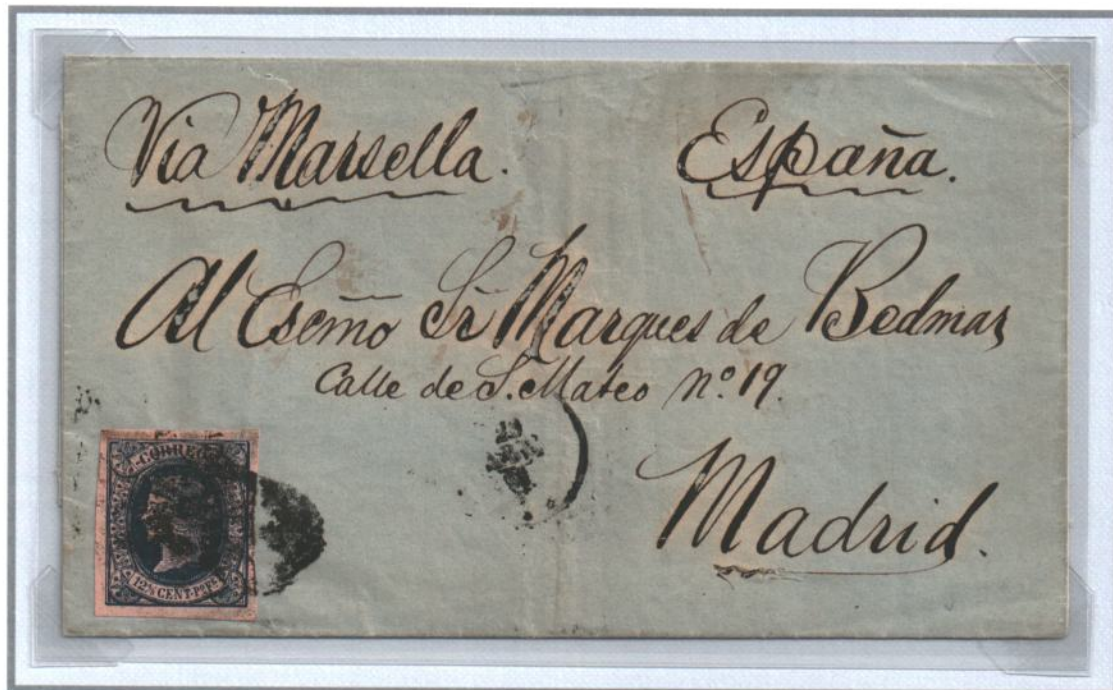 Via Marsella. España.
Al Escmo Sr Marques de Bedmar
Calle de S. Mateo nº 19.
Madrid.
CORREOS
12 4/8 CENT. Po. Fe.